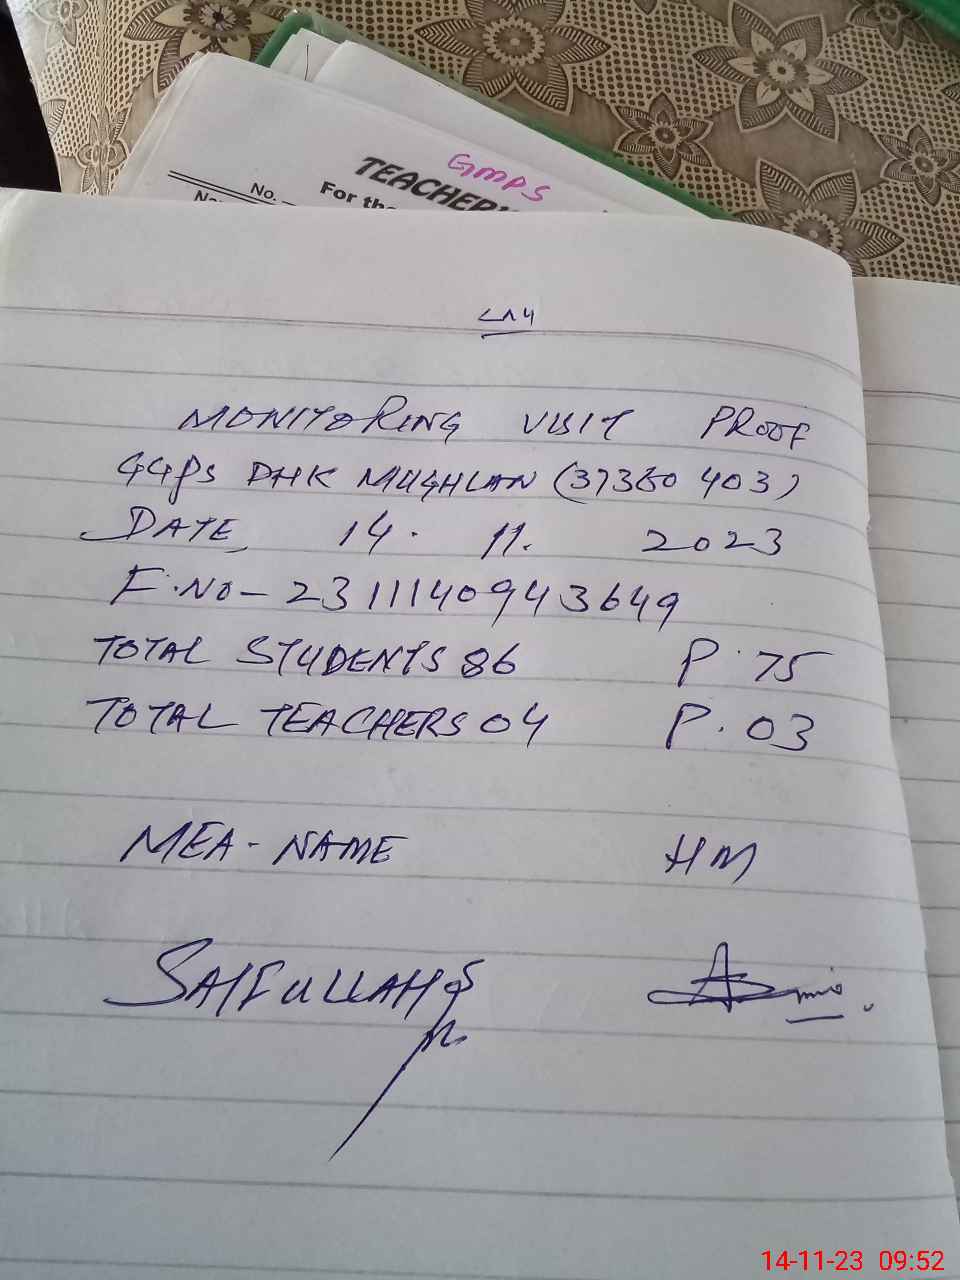 GMPS
TEACHER
No.
For the
MONITORING VISIT PROOF
GGPS DHK MUGHLAN (37360403)
DATE, 14. 11. 2023
F.NO- 231114094 3649
TOTAL STUDENTS 86 P. 75
TOTAL TEACHERS 04 P. 03
MEA- NAME HM
SAIFULLAH
14-11-23 09:52